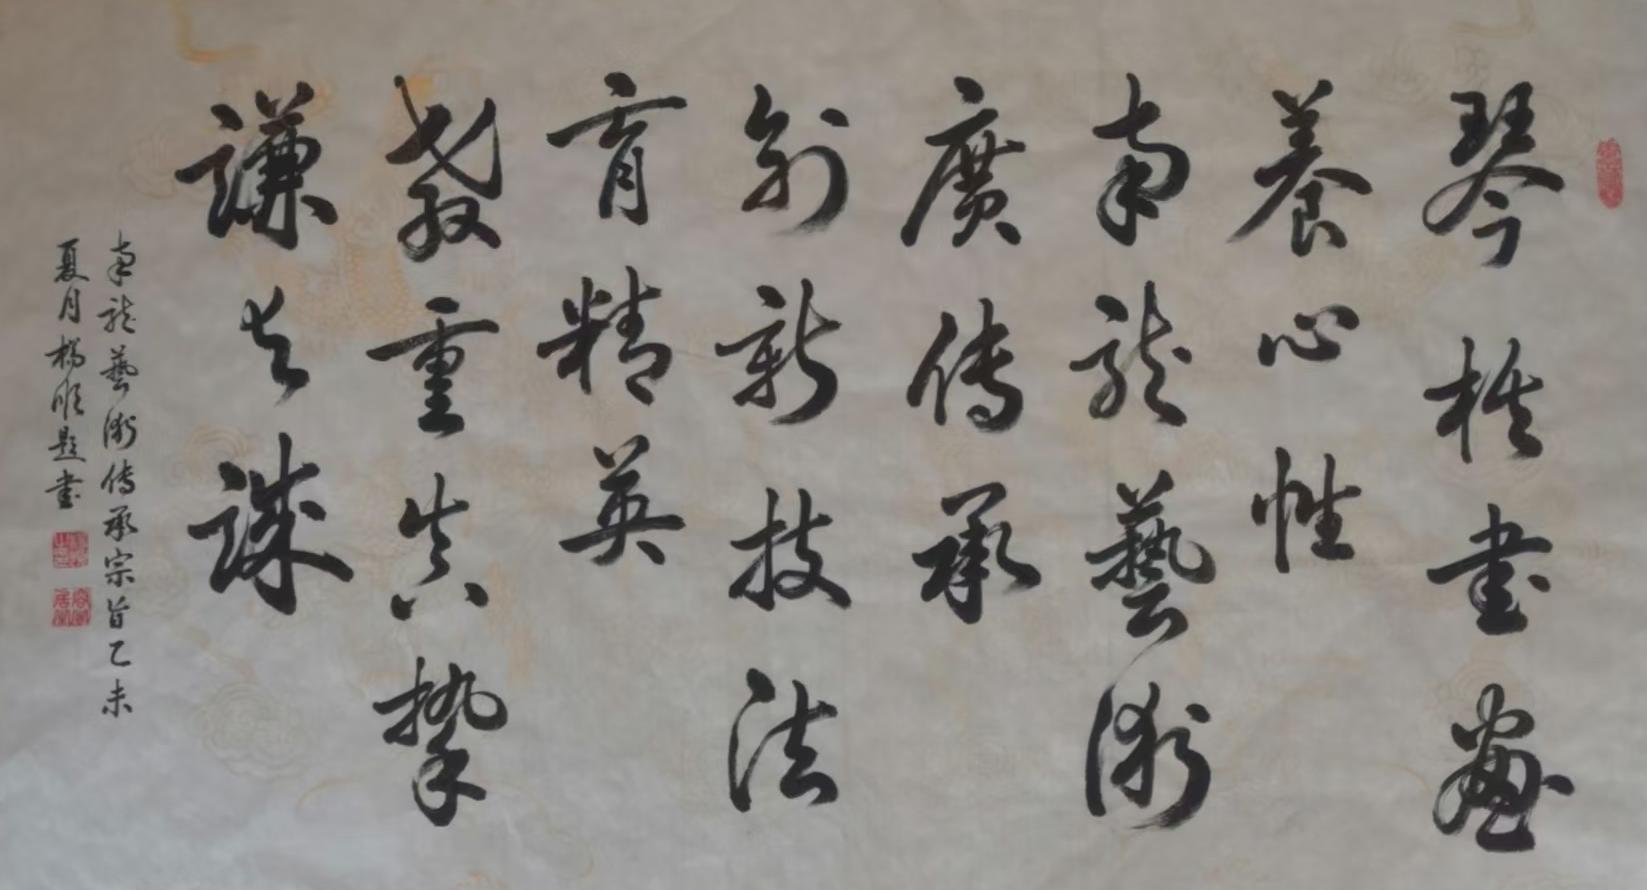 琴棋書畫
養心性
南龍藝術
廣傳承
創新技法
育精英
教重真摯
謙與誠
南龍藝術傳承宗旨乙未
夏月楊順題書